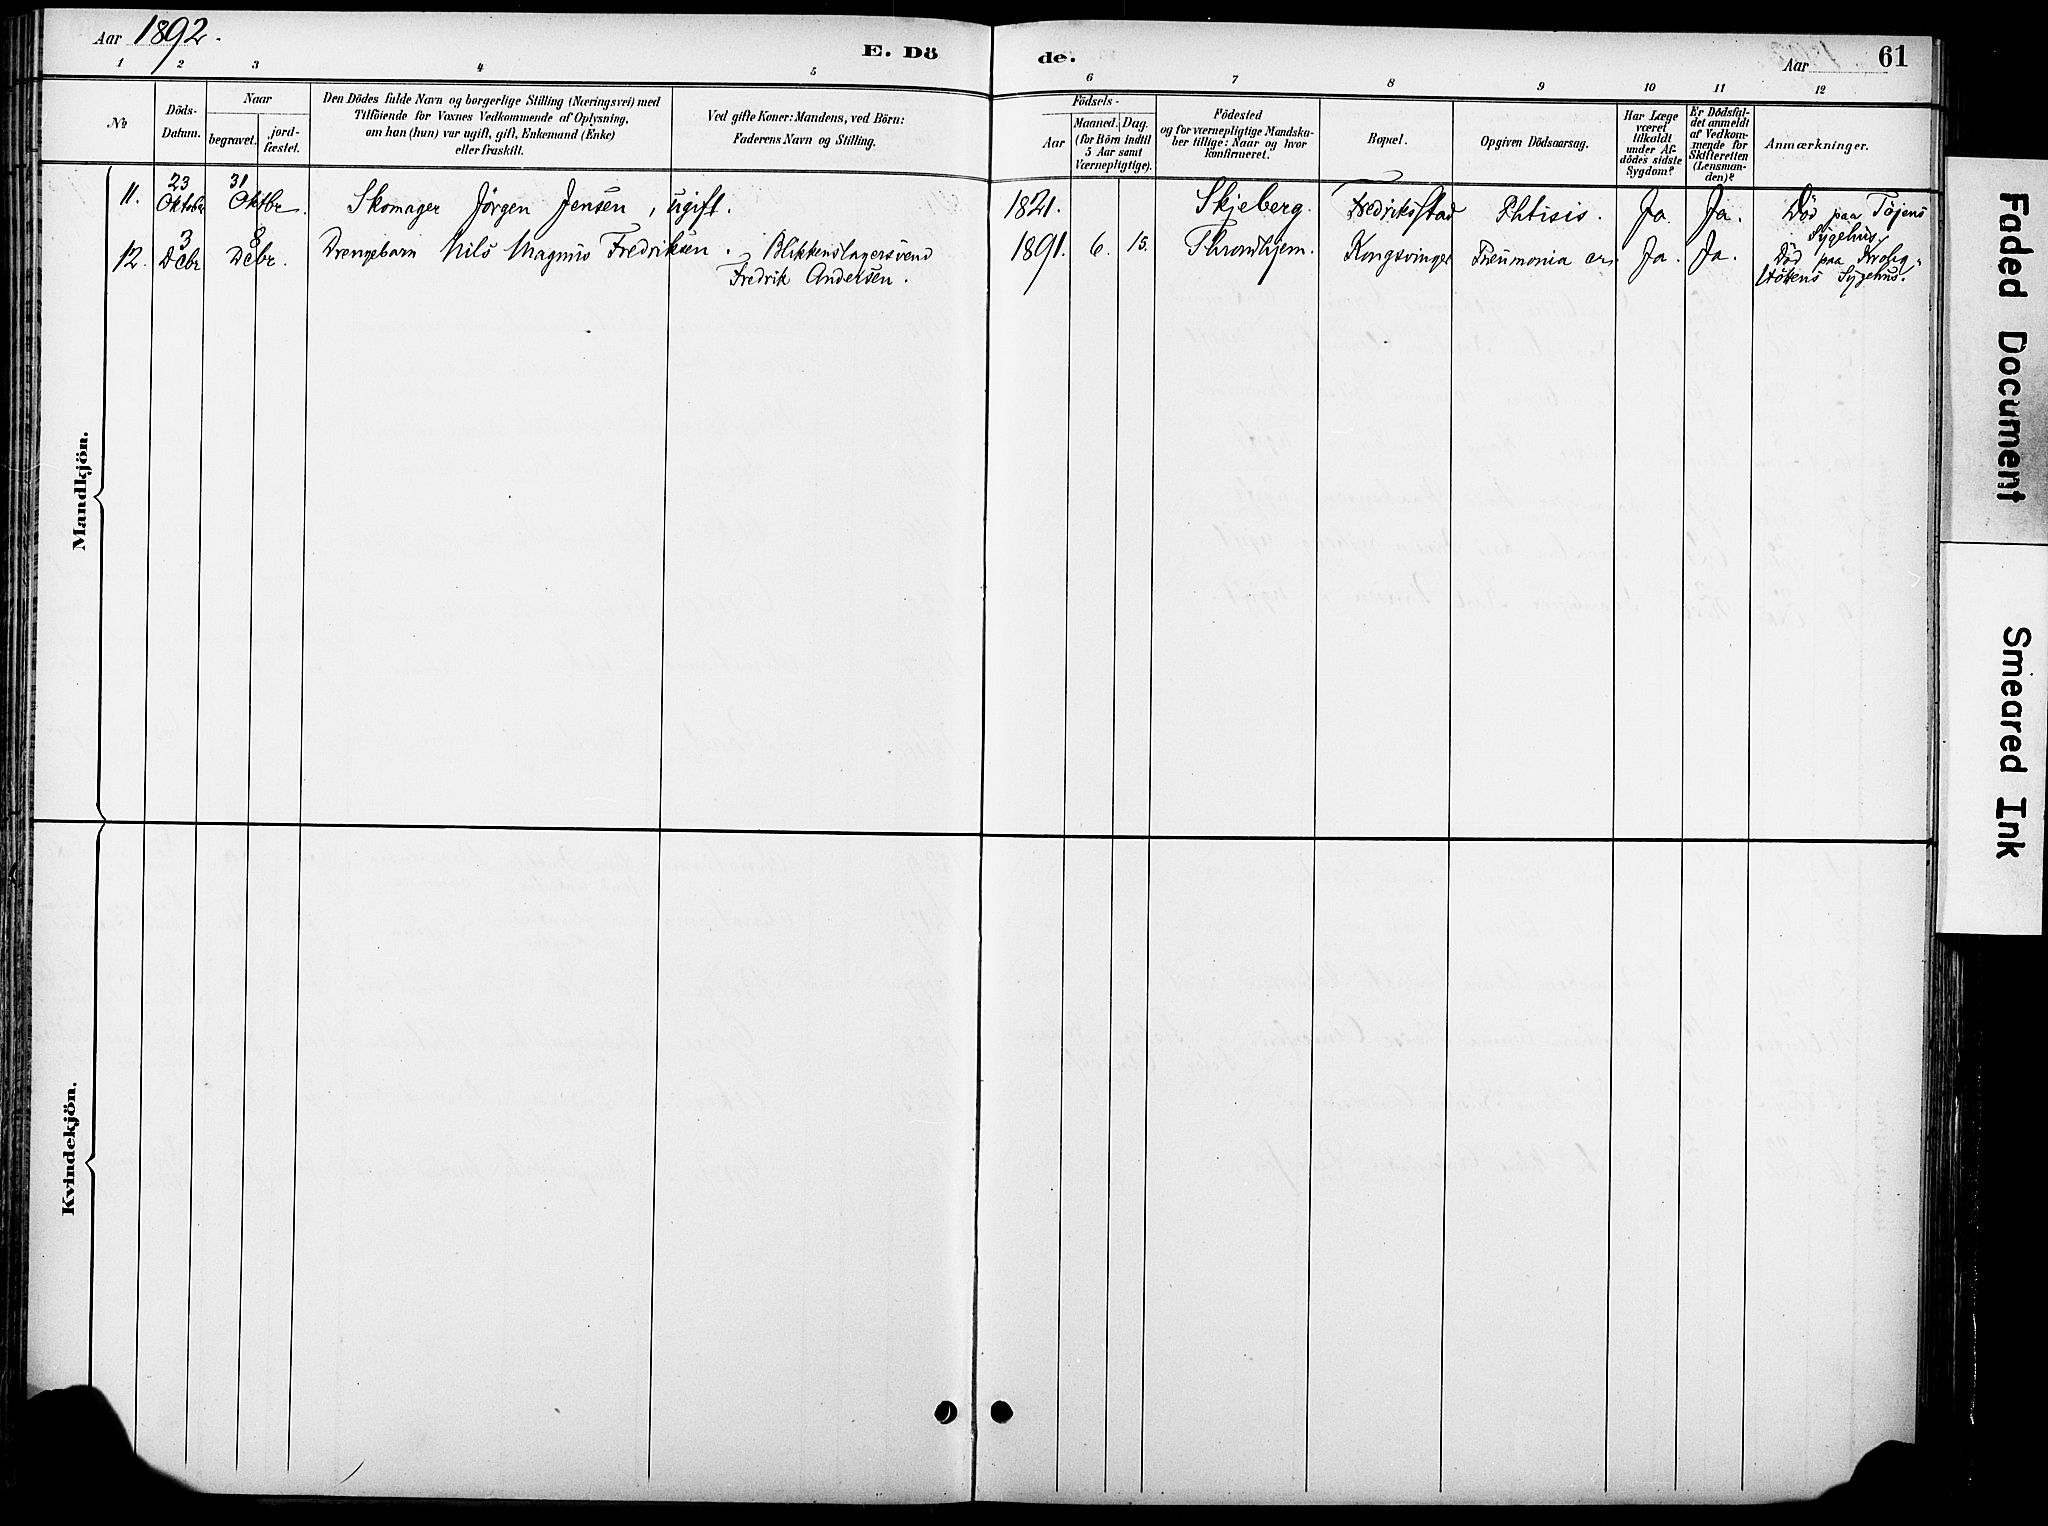 Aar 1892.
E. Dö
de.
Aar
61
1 2 3 4 5 6 7 8 9 10 11 12
№
Döds-
Datum.
Naar
begravet.
jord-
fæstet.
Den Dödes fulde Navn og borgerlige Stilling (Næringsvei) med
Tilföiende for Voxnes Vedkommende af Oplysning,
om han (hun) var ugift, gift, Enkemand (Enke)
eller fraskilt.
Ved gifte Koner: Mandens, ved Börn:
Faderens Navn og Stilling.
Födsels-
Aar
Maaned. Dag.
(for Börn indtil
5 Aar samt
Værnepligtige).
Födested
og for værnepligtige Mandska-
ber tillige: Naar og hvor
konfirmeret.
Bopæl.
Opgiven Dödsaarsag.
Har Læge
været
tilkaldt
under Af-
dödes sidste
Sygdom?
Er Dödsfal-
det anmeldt
af Vedkom-
mende for
Skifteretten
(Lensman-
den)?
Anmærkninger.
Mandkjön.
11. 23 Oktober 31 Oktbr. Skomager Jörgen Jensen, ugift. 1821. Skjeberg. Fredriksstad Phtisis. Ja. Ja. Död paa Töjens
Sygehus.
12. 3 Debr 8 Debr. Drengebarn Nils Magnus Fredriksen. Blikkenslagersvend 1891. 6. 15. Throndhjem. Kongsvinger Pneumonia Ja. Ja. Död paa Krohg-
Fredrik Andersen.
stöttens Sygehus.
Kvindekjön.
Faded Document
Smeared Ink